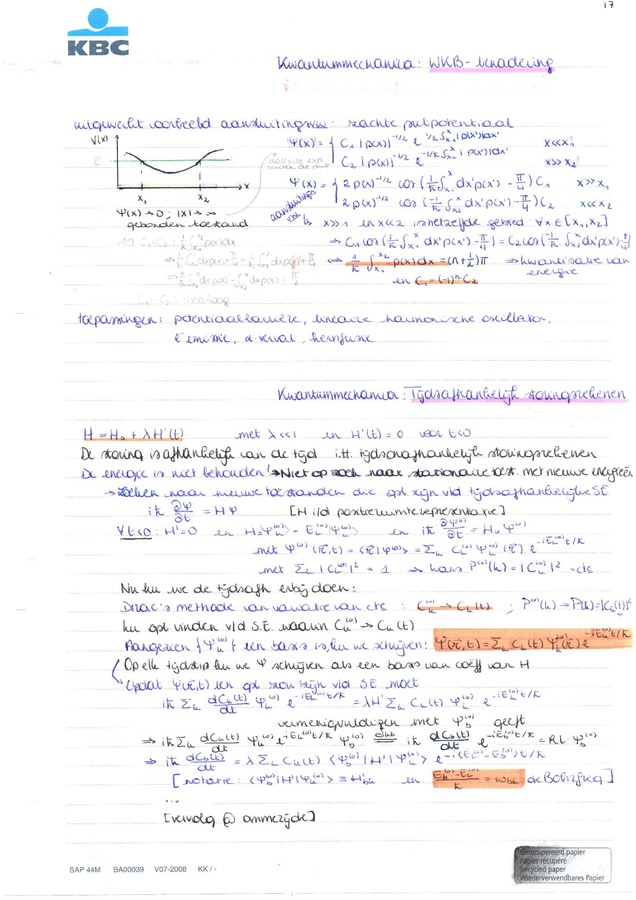 17
KBC
Kwantummechanica: WKB-benadering
uitgewerkt voorbeeld aansluitingsvw: zachte putpotentiaal
V(x)
E
x
x₁ x₂
ψ(x)→0; |x|→∞
gebonden toestand
ψ(x) = { C₁ |p(x)|^-1/2 e^1/ħ∫ₓ₁ˣ |p(x')|dx' x<<x₁
C₂ |p(x)|^-1/2 e^-1/ħ∫ₓ₂ˣ |p(x')|dx' x>>x₂
ψ(x) = { 2p(x)^-1/2 cos(1/ħ∫ₓ₁ˣ dx'p(x') - π/4)C₁ x>>x₁
2p(x)^-1/2 cos(-1/ħ∫ₓ₂ˣ dx'p(x') - π/4)C₂ x<<x₂
↳ x>>1 en x<<2 is hetzelfde gebied: ∀x∈[x₁,x₂]
⇒ C₁cos(1/ħ∫ₓ₁ˣ dx'p(x') - π/4) = C₂cos(-1/ħ∫ₓ₂ˣ dx'p(x') - π/4)
⇔ 1/ħ ∫ₓ₁ˣ² p(x)dx = (n+1/2)π ⇒ kwantisatie van energie
en C₁=(-1)ⁿC₂
toepassingen: potentiaalbarrière, lineaire harmonische oscillator,
e⁻emissie, α-verval, kernfusie
Kwantummechanica: Tijdsafhankelijk storingsrekenen
H = H₀ + λH'(t) met λ<<1 en H'(t)=0 voor t<0
De storing is afhankelijk van de tijd i.t.t. tijdsonafhankelijk storingsrekenen
De energie is niet behouden! → Niet op zoek naar stationaire toest. met nieuwe energieën
→ Zoeken naar nieuwe toestanden die opl zijn vd tijdsafhankelijke SE
iħ ∂ψ/∂t = Hψ [H i/d positieruimterepresentatie]
∀t<0: H'=0 en H₀|ψₖ⁽⁰⁾> = Eₖ⁽⁰⁾|ψₖ⁽⁰⁾> en iħ ∂ψ⁽⁰⁾/∂t = H₀ψ⁽⁰⁾
met ψ⁽⁰⁾(r,t) = <r|ψ⁽⁰⁾> = Σₖ Cₖ⁽⁰⁾ψₖ⁽⁰⁾(r) e^-iEₖ⁽⁰⁾t/ħ
met Σₖ |Cₖ⁽⁰⁾|² = 1 → kans P⁽⁰⁾(k) = |Cₖ⁽⁰⁾|² = cte
Nu hu we de tijdsafh erbij doen:
Dirac's methode van variatie van cte: Cₖ⁽⁰⁾ → Cₖ(t) ; P⁽⁰⁾(k) → P(k)=|Cₖ(t)|²
hu opl vinden v/d S.E. waarin Cₖ⁽⁰⁾ → Cₖ(t)
Aangezien {ψₖ⁽⁰⁾} een basis is, hu we schrijven: ψ(r,t) = Σₖ Cₖ(t) ψₖ⁽⁰⁾(r) e^-iEₖ⁽⁰⁾t/ħ
Op elk tijdstip hu we ψ schrijven als een basis van coëff van H
Opdat ψ(r,t) een opl zou zijn vd SE moet
iħ Σₖ dCₖ(t)/dt ψₖ⁽⁰⁾ e^-iEₖ⁽⁰⁾t/ħ = λH' Σₖ Cₖ(t) ψₖ⁽⁰⁾ e^-iEₖ⁽⁰⁾t/ħ
vermenigvuldigen met ψ_b⁽⁰⁾ geeft
⇒ iħ Σₖ dCₖ(t)/dt ψₖ⁽⁰⁾ e^-iEₖ⁽⁰⁾t/ħ ψ_b⁽⁰⁾ = iħ dC_b(t)/dt e^-iE_b⁽⁰⁾t/ħ = RL·ψ_b⁽⁰⁾
⇒ iħ dC_b(t)/dt = λ Σₖ Cₖ(t) <ψ_b⁽⁰⁾|H'|ψₖ⁽⁰⁾> e^-i(Eₖ⁽⁰⁾-E_b⁽⁰⁾)t/ħ
[notatie: <ψ_b⁽⁰⁾|H'|ψₖ⁽⁰⁾> ≡ H'_bk en (E_b⁽⁰⁾-Eₖ⁽⁰⁾)/ħ = ω_bk de Bohrfreq]
...
[vervolg @ ommezijde]
SAP 44M BA00039 V07-2008 KK / -
Gerecupereerd papier
Papier récupéré
Recycled paper
Wiederverwendbares Papier